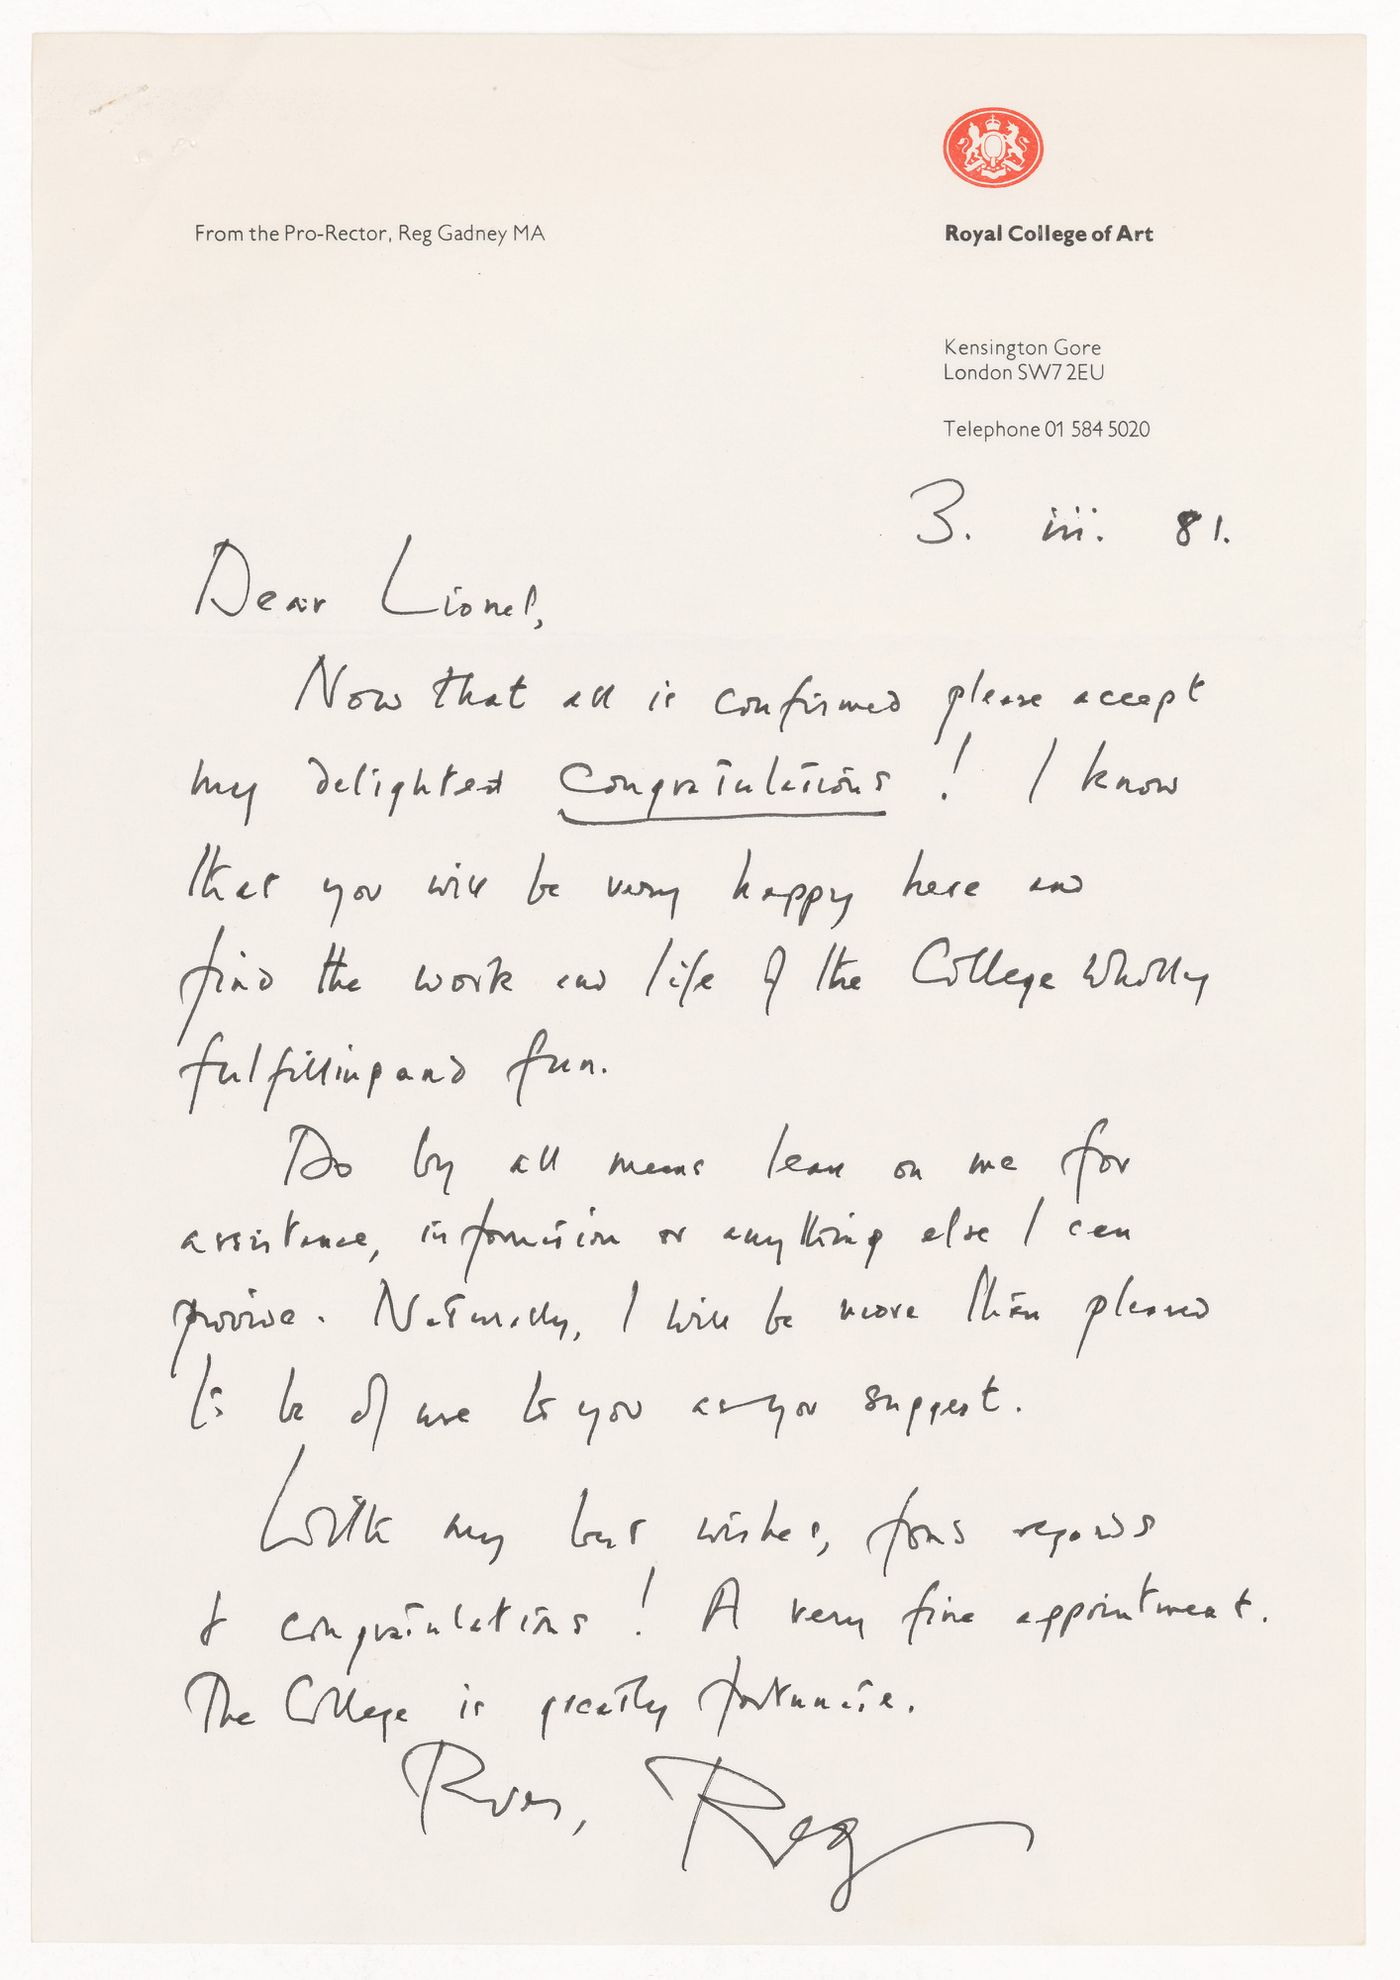 From the Pro-Rector, Reg Gadney MA
Royal College of Art
Kensington Gore
London SW7 2EU
Telephone 01 584 5020
3. iii. 81.
Dear Lionel,
Now that all is confirmed please accept
my delighted congratulations! I know
that you will be very happy here and
find the work and life of the College wholly
fulfilling and fun.
Do by all means lean on me for
assistance, information or anything else I can
provide. Naturally, I will be more than pleased
to be of use to you as you suggest.
With my best wishes, fond regards
& congratulations! A very fine appointment.
The College is greatly fortunate.
Reg